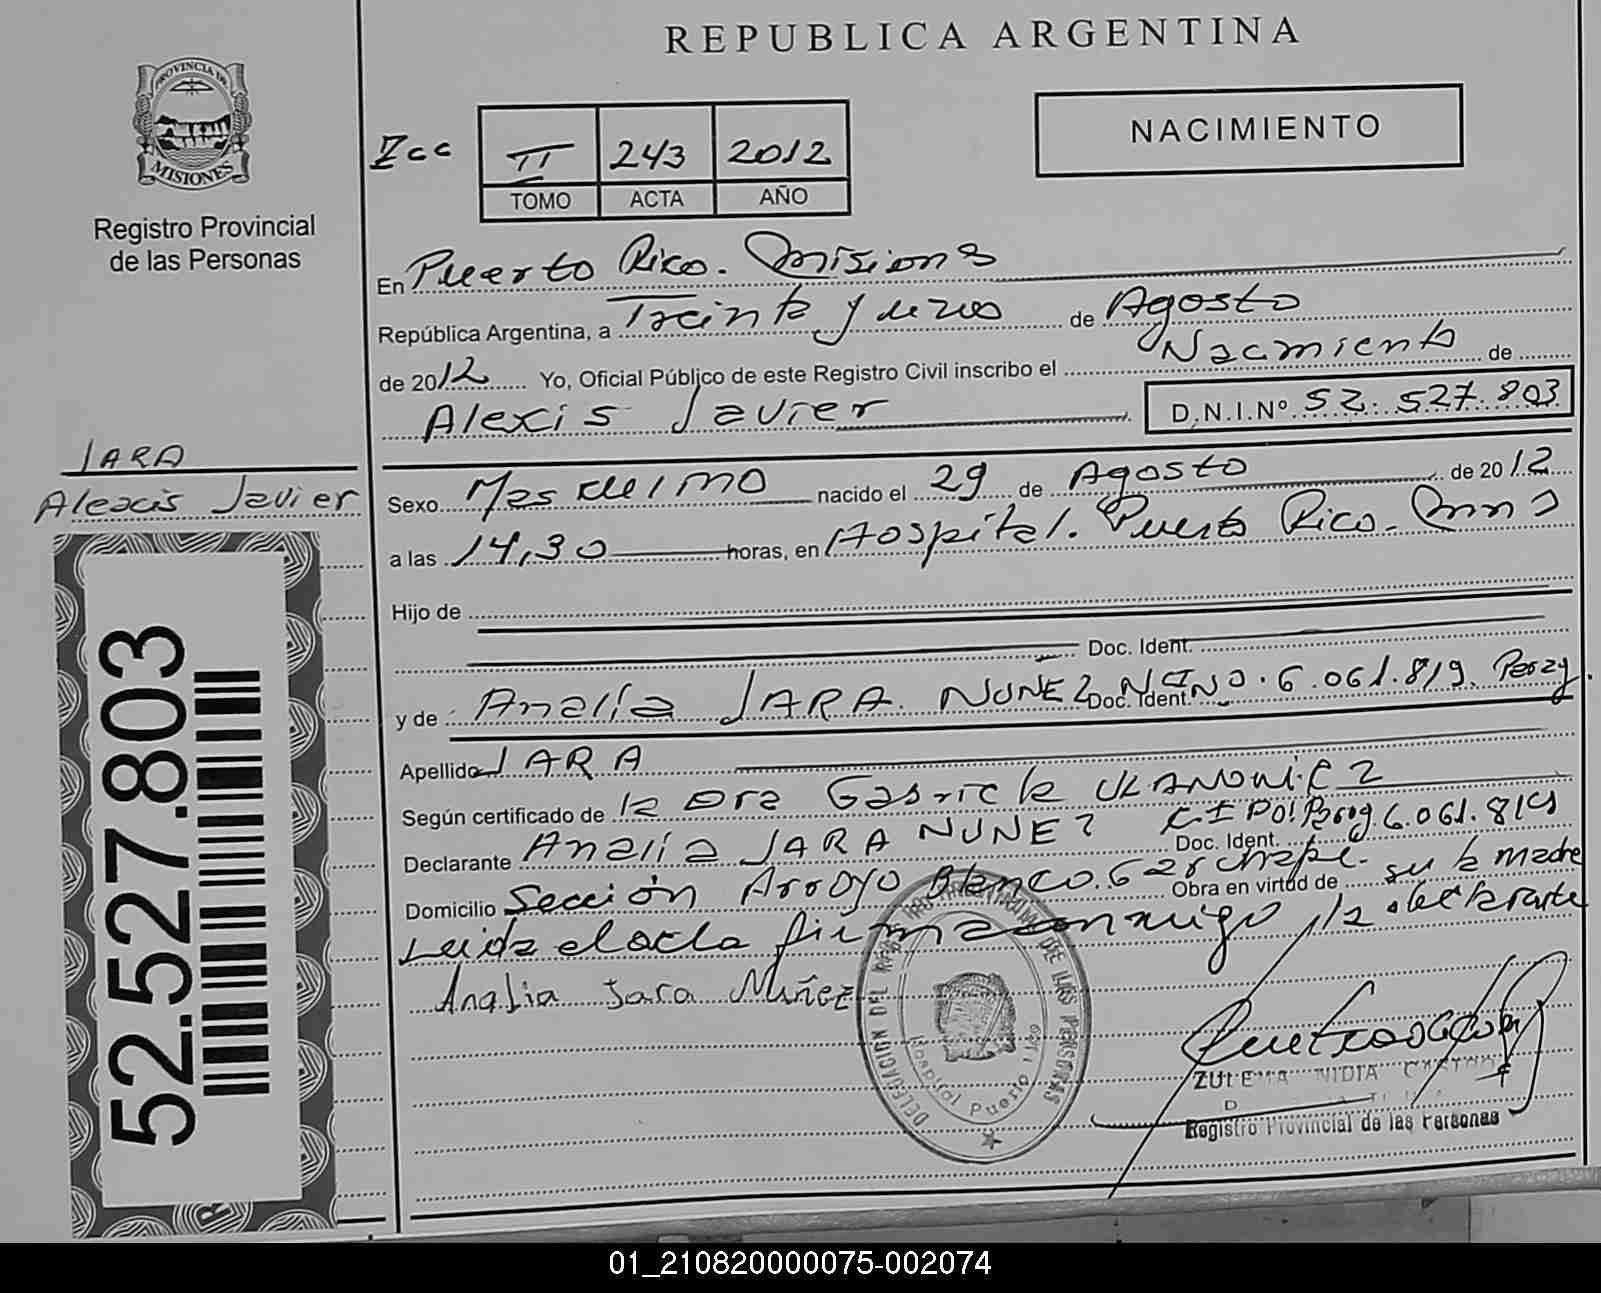 REPUBLICA ARGENTINA
PROVINCIA DE
MISIONES
Registro Provincial
de las Personas
NACIMIENTO
II 243 2012
TOMO ACTA AÑO
En Puerto Rico. Misiones
República Argentina, a Treinta y uno de Agosto
de 2012 Yo, Oficial Público de este Registro Civil inscribo el Nacimiento de
Alexis Javier D.N.I.Nº 52.527.803
JARA
Alexis Javier
Sexo Masculino nacido el 29 de Agosto de 2012
a las 14,30 horas, en Hospital. Puerto Rico. Mnes
Hijo de
Doc. Ident.
y de Analía JARA NUÑEZ Doc. Ident. Nº 6.061.819. Parag.
Apellido JARA
Según certificado de la Dra Gabriela
Declarante Analía JARA NUÑEZ Doc. Ident. CI Pol Parag 6.061.819
Domicilio Sección Arroyo Blanco. Garuhape. Obra en virtud de su la madre
Leida el acta firma conmigo la declarante
Analia Jara Núñez
DELEGACIÓN DEL REG. PROVINCIAL DE LAS PERSONAS
Hospital Puerto Rico
ZULEMA NIDIA
Registro Provincial de las Personas
52.527.803
01_210820000075-002074